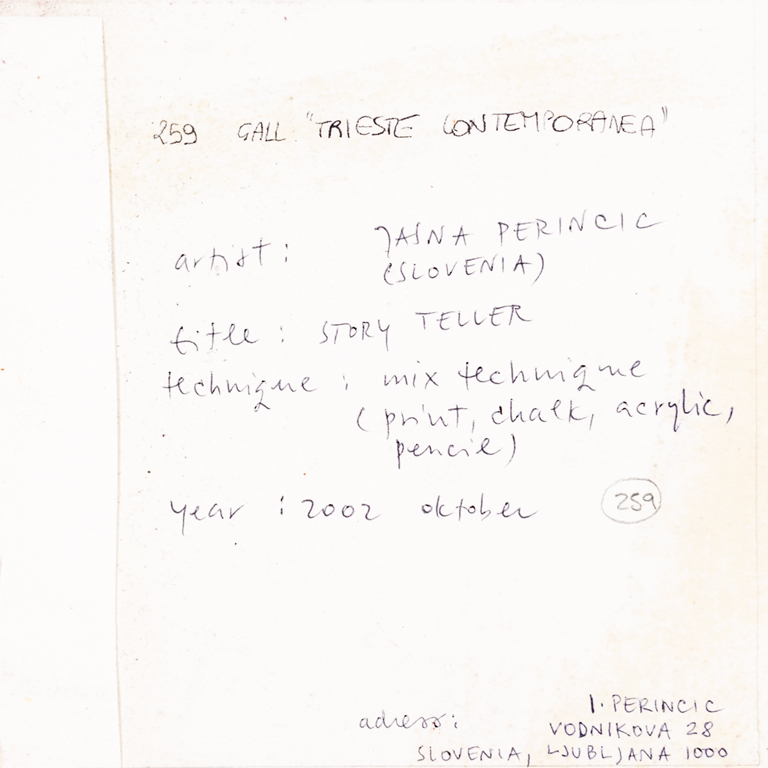 259 GALL "TRIESTE CONTEMPORANEA"
artist: JASNA PERINCIC
(SLOVENIA)
title: STORY TELLER
technique: mix technique
(print, chalk, acrylic,
pencil)
year: 2002 oktober 259
I. PERINCIC
adress: VODNIKOVA 28
SLOVENIA, LJUBLJANA 1000